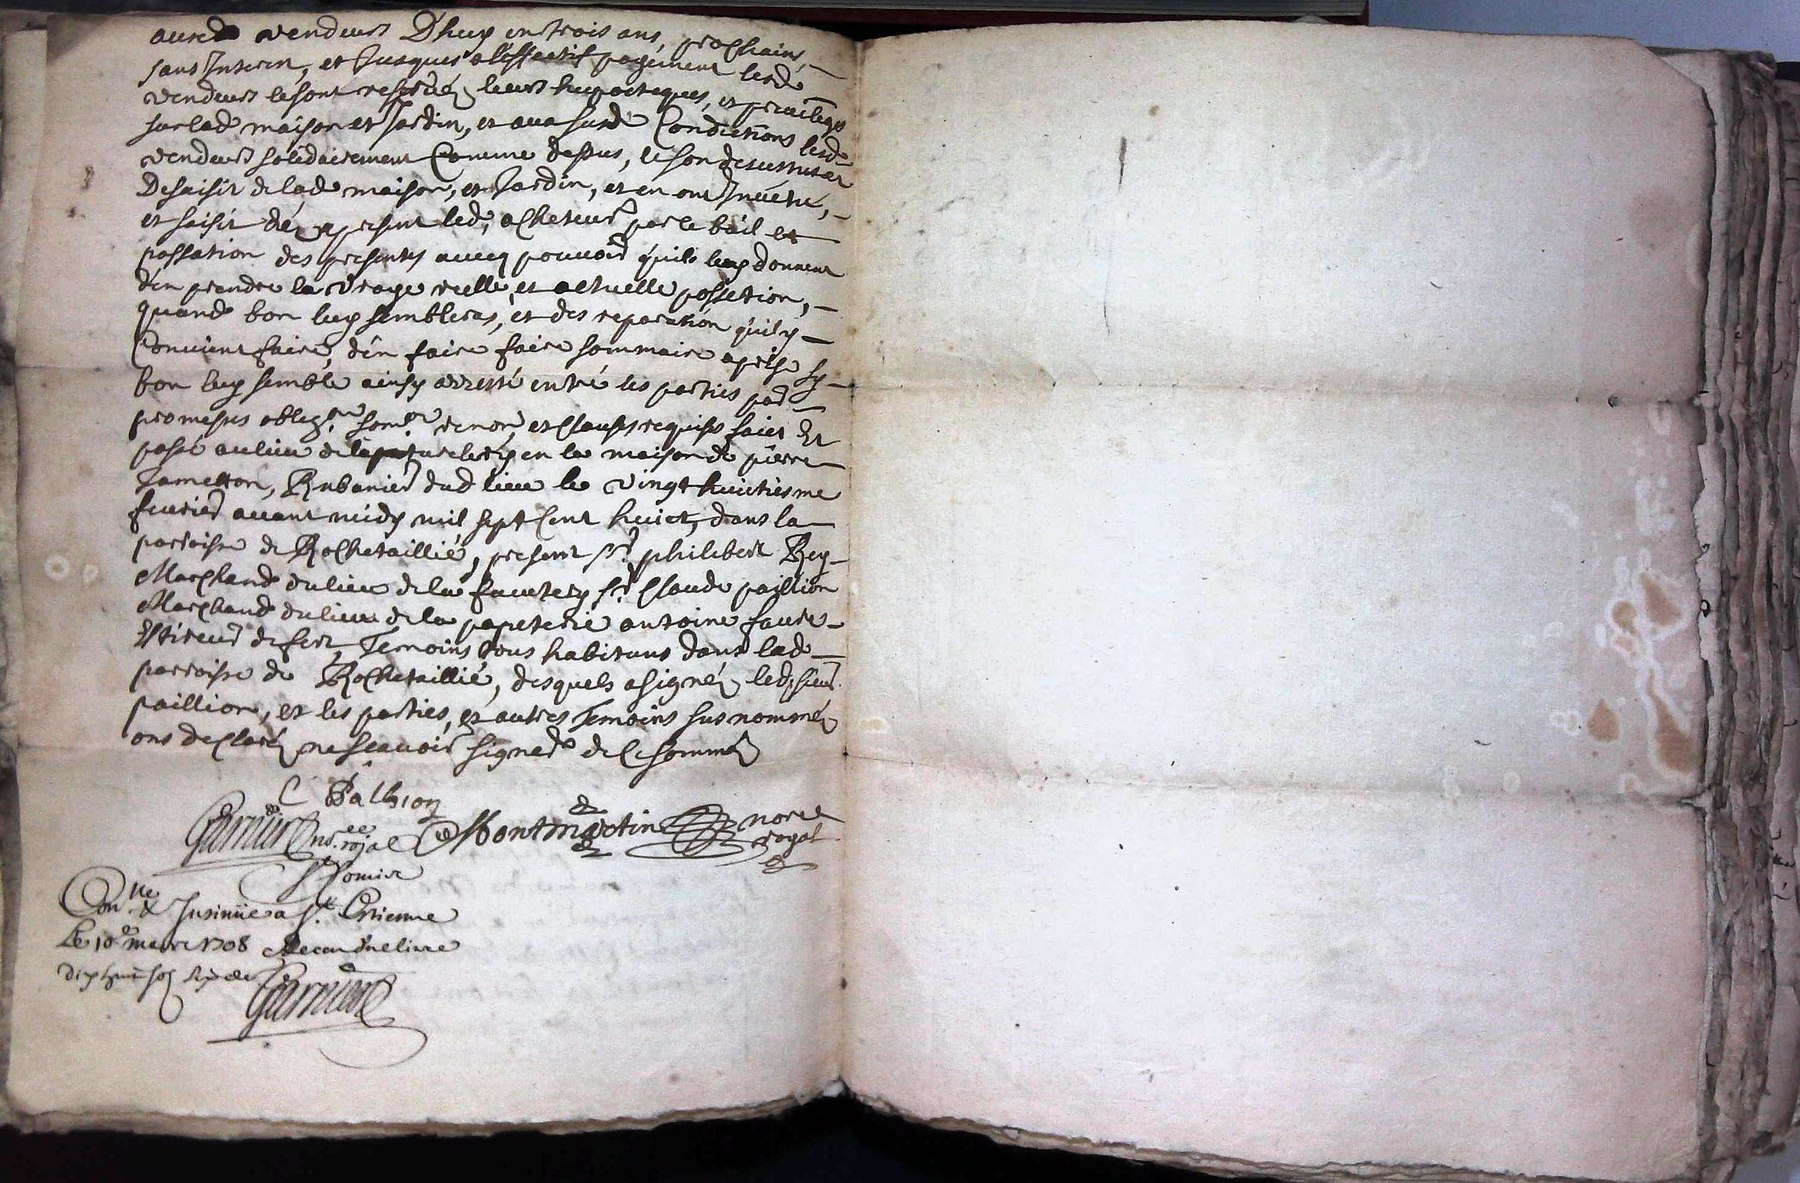 vendeurs D'huy en trois ans prochains,
sans Interest, et Jusques a l'effectif payement lesd
vendeurs le sont reservéz leurs hipoteques, et privileges
sur lad maison et Jardin, et aux susd Conditions lesd
vendeurs solidairement Comme dessus, se son desvestus et
Desaisis de lad maison, et Jardin, et en ont Jnvetu,
et saisit déz apresent led, acheteur par le bail et
passation des presentes avecq pouvoir qu'ils luy donnent
d'en prendre la vraye reelle, et actuelle possetion,
quand bon luy semblera, et des reparation qu'il y
Convient faire, d'en faire faire sommaire aprise sy
bon luy semble ainsy arresté entre les parties par
promesses oblig.on som.on renon, et Clauses requises faict Et
passé au lieu de en la maison de pierre
Jametton, Rubanier dud lieu le vingt huictiesme
fevrier avant midy mil sept Cent huict, dans la
parroisse de Rochetaillié, present Sr philibert Rey
Marchand du lieu de la Sr Claude paillion
Marchand du lieu de la papeterie antoine faure
de fert, Temoins tous habitans dans lad
parroisse de Rochetaillié, desquels a signéz led, sieur
paillion, et les parties, et autres Temoins sus nomméz
ons declaréz ne scavoir signer de Ce somméz
C Palhion
Garnier no.re rojal Montmartin no.re
royal
Con.lle & Insinüé a S.t Estienne
Le 10e mars 1708 Receu une livre
dix huit sol six den
Garnier